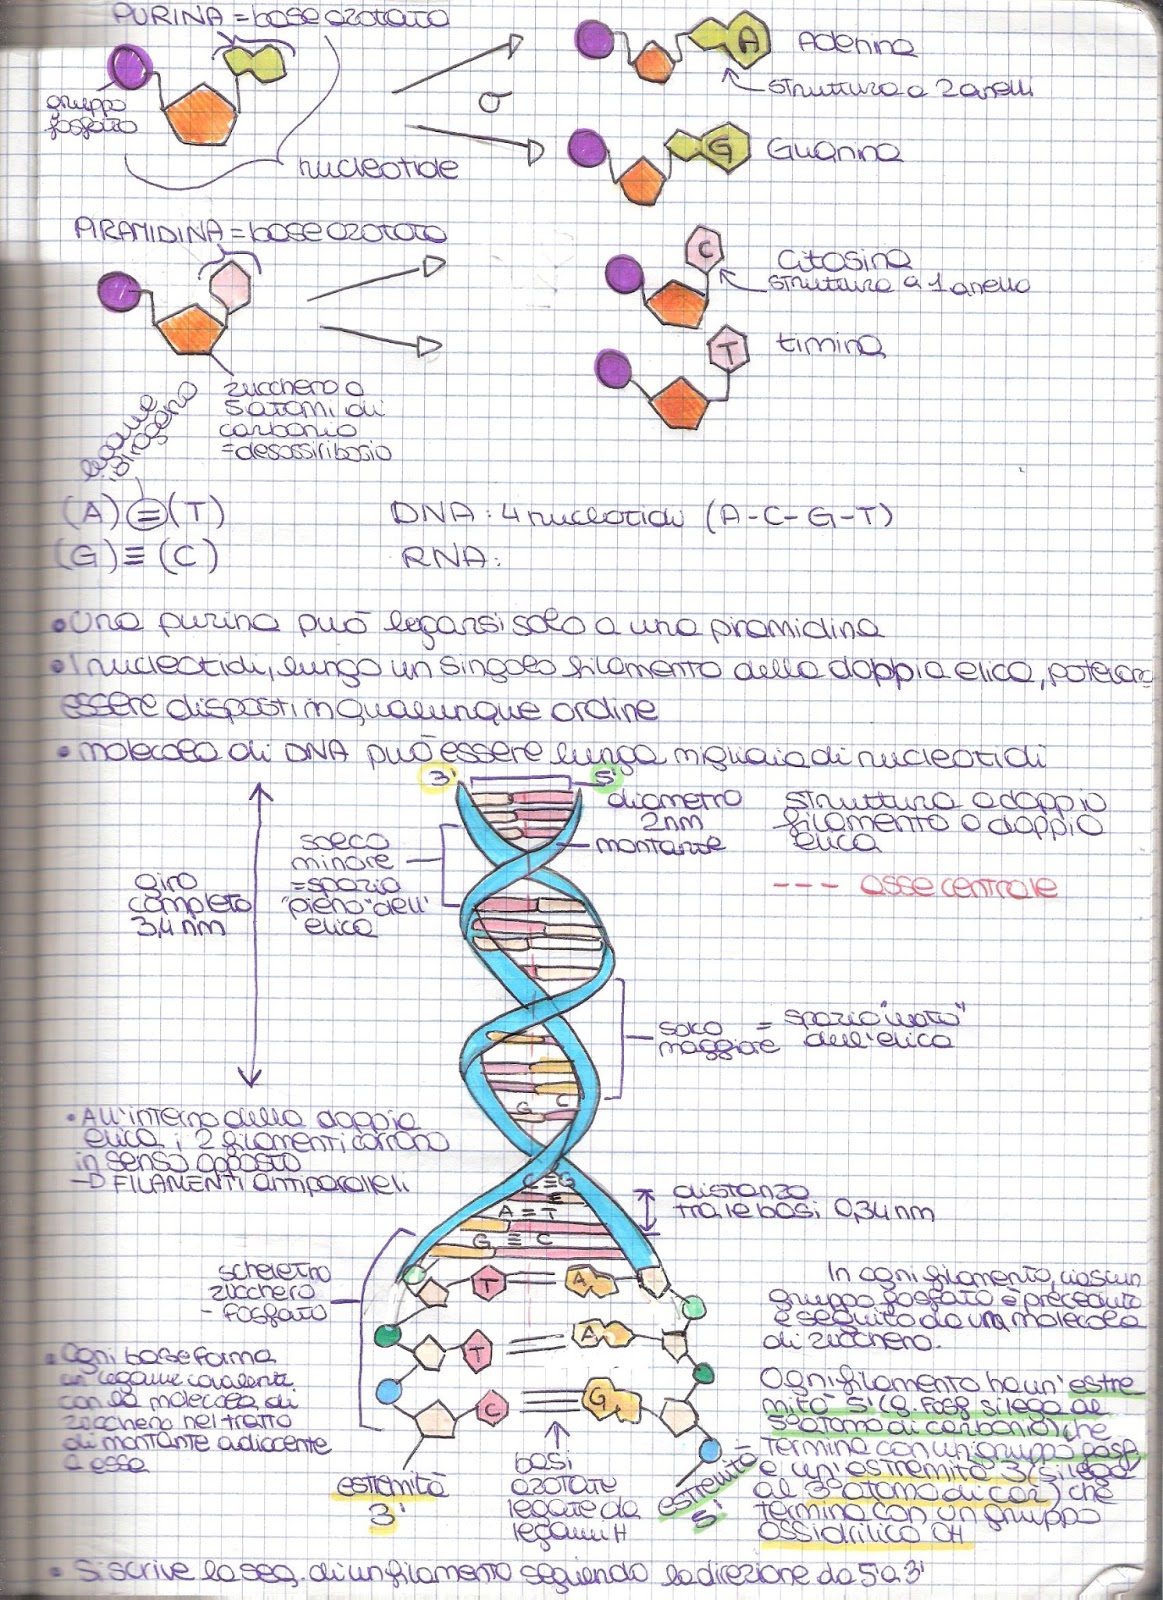 PURINA = base azotata
gruppo
fosfato
nucleotide
o
A
Adenina
struttura a 2 anelli
G
Guanina
PIRAMIDINA = base azotata
zucchero a
5 atomi di
carbonio
= desossiribosio
C
Citosina
struttura a 1 anello
T
timina
legame
idrogeno
(A) = (T)
(G) ≡ (C)
DNA: 4 nucleotidi (A-C-G-T)
RNA:
• Una purina può legarsi solo a una piramidina
• I nucleotidi, lungo un singolo filamento della doppia elica, potevano
essere disposti in qualunque ordine
• molecola di DNA può essere lunga migliaia di nucleotidi
3' 5'
diametro
2nm
montante
struttura a doppio
filamento o doppia
elica
--- asse centrale
solco
minore
= spazio
"pieno" dell'
elica
giro
completo
3,4 nm
solco
maggiore
= spazio "vuoto"
dell'elica
G C
• All'interno della doppia
elica i 2 filamenti corrono
in senso opposto
→ FILAMENTI antiparalleli
C ≡ G
A = T
G ≡ C
distanza
tra le basi 0,34 nm
scheletro
zucchero
- fosfato
T A
T A
C G
• Ogni base forma
un legame covalente
con la molecola di
zucchero nel tratto
di montante adiacente
a essa
estremità
3'
basi
azotate
legate da
legami H
estremità
5'
In ogni filamento, ciascun
gruppo fosfato è preceduto
e seguito da una molecola
di zucchero.
Ogni filamento ha un'estre
mità 5' (g. fosf si lega al
5° atomo di carbonio) che
termina con un gruppo fosf.
e un'estremità 3' (si lega
al 3° atomo di car.) che
termina con un gruppo
ossidrilico OH
• Si scrive la seq. di un filamento seguendo la direzione da 5' a 3'